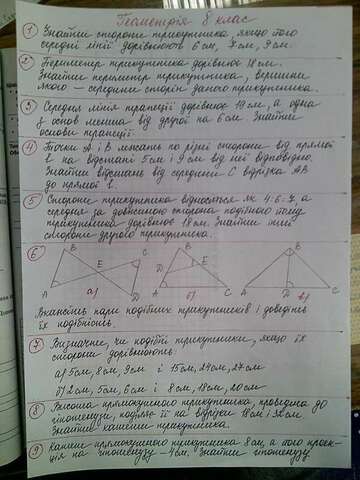 Геометрія 8 клас
1 Знайти сторони трикутника, якщо його
середні лінії дорівнюють 6 см, 7 см, 9 см.
2 Периметр трикутника дорівнює 18 см.
Знайти периметр трикутника, вершини
якого – середини сторін даного трикутника.
3 Середня лінія трапеції дорівнює 19 см, а одна
з основ менша від другої на 6 см. Знайти
основи трапеції.
4 Точки А і В лежать по різні сторони від прямої
l на відстані 5 см і 9 см від неї відповідно.
Знайти відстань від середини С відрізка АВ
до прямої l.
5 Сторони трикутника відносяться як 4:6:7, а
середня за довжиною сторона подібного йому
трикутника дорівнює 18 см. Знайти інші
сторони другого трикутника.
6 B E C A D а)
B D E A C б)
B A D C в)
Вкажіть пари подібних трикутників і доведіть
їх подібність.
7 Визначте, чи подібні трикутники, якщо їх
сторони дорівнюють:
а) 5 см, 8 см, 9 см і 15 см, 24 см, 27 см
б) 2 см, 5 см, 6 см і 8 см, 18 см, 20 см
8 Висота прямокутного трикутника, проведена до
гіпотенузи, поділяє її на відрізки 18 см і 32 см.
Знайти катети трикутника.
9 Катет прямокутного трикутника 8 см, а його проек-
ція на гіпотенузу – 4 см. Знайти гіпотенузу.